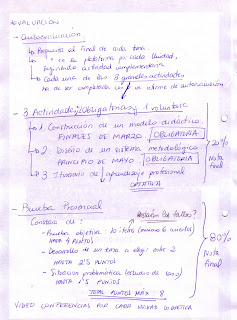 EVALUACIÓN
- Autoevaluación
↳ Respuesta al final de cada tema.
↳ " en la plataforma por cada Unidad,
actividad complementaria
↳ Cada una de las 3 grandes actividades
ha de ser completada con un informe de autoevaluación
- 3 Actividades: 2 Obligatorias y 1 voluntaria
→ 1. Construcción de un modelo didáctico.
FINALES DE MARZO OBLIGATORIA
→ 2. Diseño de un sistema metodológico
PRINCIPIO DE MAYO OBLIGATORIA
→ 3. Itinerario de aprendizaje profesional
OPTATIVA
20%
Nota
Final
- Prueba Presencial
¿Restan los fallos?
Consta de:
- Prueba objetiva: 10 items (mínimo 6 aciertos)
HASTA 4 PUNTOS
- Desarrollo de un tema a elegir entre 2
HASTA 2'5 PUNTOS
- Situación problemática (estudio de caso)
HASTA 1'5 PUNTOS
TOTAL PUNTOS MÁX: 8
80%
Nota
Final
VIDEO CONFERENCIAS POR CADA UNIDAD DIDÁCTICA